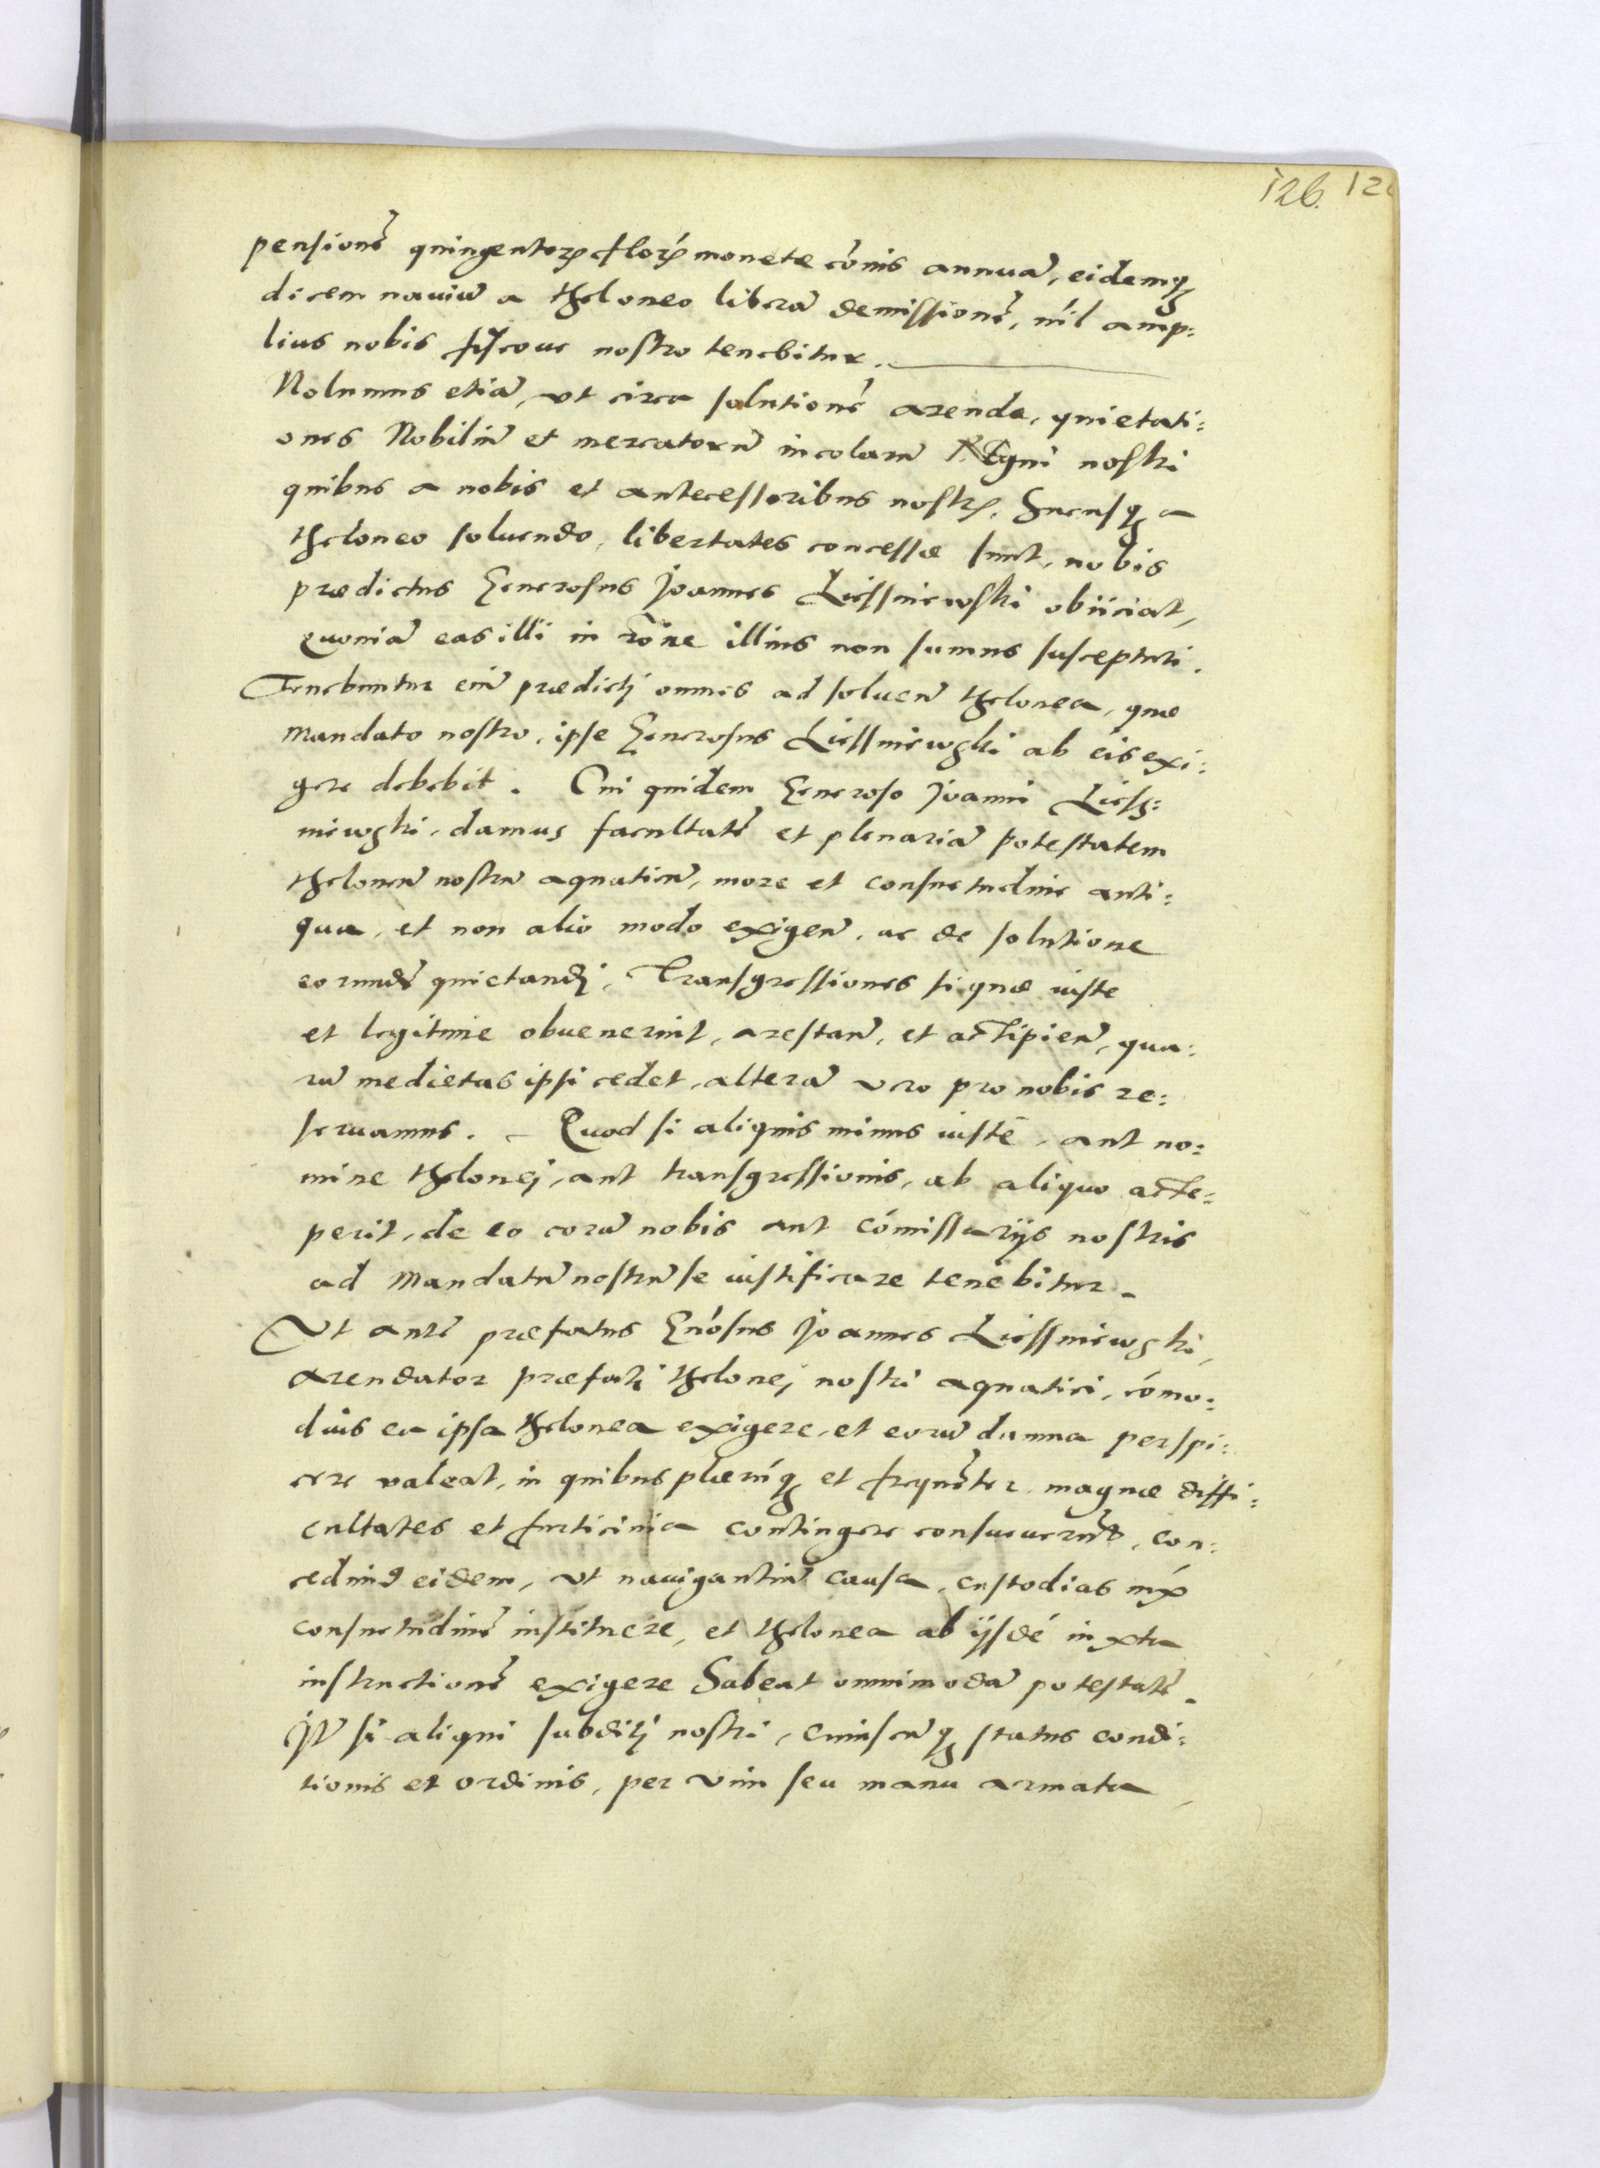 126. 12
pensionẽ quingentoꝝ floꝝ monetæ cõmis annuã, eidemqꝫ
dicem nauiũ a theloneo liberã demissionẽ, nil amp:
lius nobis fiscoue nostro tenebitur.
Nolumus etiã, vt circa solutionẽ arendæ, quietati:
ones Nobiliũ et mercatorũ incolarũ Regni nostri
quibus a nobis et antecessoribus nostris hucusqꝫ a
theloneo soluendo, libertates concessæ sunt, nobis
prædictus Generosus Joannes Liessniewski obiiciat,
Quoniã eas illi in rõne illius non sumus suscepturi.
Tenebuntur eñ prædicti omnes ad soluenꝺ thelonea, quæ
mandato nostro, ipse Generosus Liessniewski ab eis exi:
gere debebit. Cui quidem Generoso Joanni Liess:
niewski, damus facultatẽ et plenariã potestatem
theloneũ nostrũ aquaticũ, more et consuetudine anti:
qua, et non alio modo exigenꝺ, ac de solutione
eorundẽ quietandi, Transgressiones si quæ iuste
et legitime obuenerint, arestanꝺ, et accipienꝺ, qua:
rũ medietas ipsi cedet, alterã vero pro nobis re:
seruamus. Quod si aliquis minus iuste, aut no:
mine thelonej, aut transgressionis, ab aliquo acce:
perit, de eo corã nobis aut cõmissarijs nostris
ad Mandatũ nostrũ se iustificare tenebitur.
Vt autẽ præfatus Gñosus Joannes Liessniewski,
arendator præfati thelonej nostri aquatici, cõmo:
dius ea ipsa thelonea exigere, et eorũ damna perspi:
cere valeat, in quibus plærũqꝫ et frequẽter magnæ diffi:
cultates et furticinia contingere consueuerunt, con:
cedimꝰ eidem, vt nauigantiũ causa, custodias iux
consuetudinẽ instituere, et thelonea ab ijsdẽ iuxta
instructionẽ exigere habeat omnimodã potestatẽ.
Itẽ si aliqui subditi nostri, cuiuscũqꝫ status condi:
tionis et ordinis, per vim seu manu armata